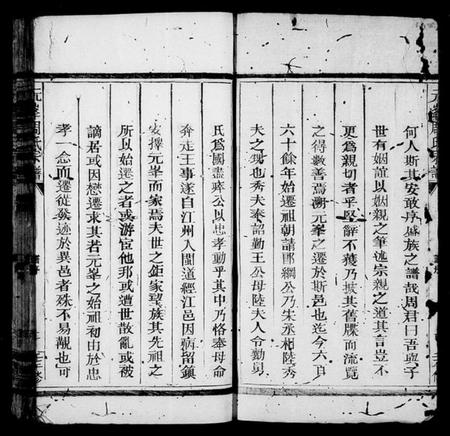 何人斯其安敢序盛族之譜哉周君曰吾與子
世有姻誼以姻親之筆述宗親之道其言豈不
更爲親切者乎堅辭不獲乃披其舊牒而流覽
之得數善焉溯元峯之遷於斯邑也迄今六百
六十餘年始遷祖朝請郎綱公乃朱丞相陸秀
夫之甥也秀夫奉詔勤王公母陸夫人令勷舅
氏爲國盡瘁公以忠孝動乎其中乃恪奉母命
奔走王事遂自江州人閩道經江邑因病留鎮
安擇元峯而家焉夫世之鉅家望族其先祖之
所以始遷之者或游宦他邦或遭世散亂或被
謫居或因戀遷求其若元峯之始祖初由於忠
孝一念而遷從發迹於異邑者殊不易覯也可
元峯周氏宗譜